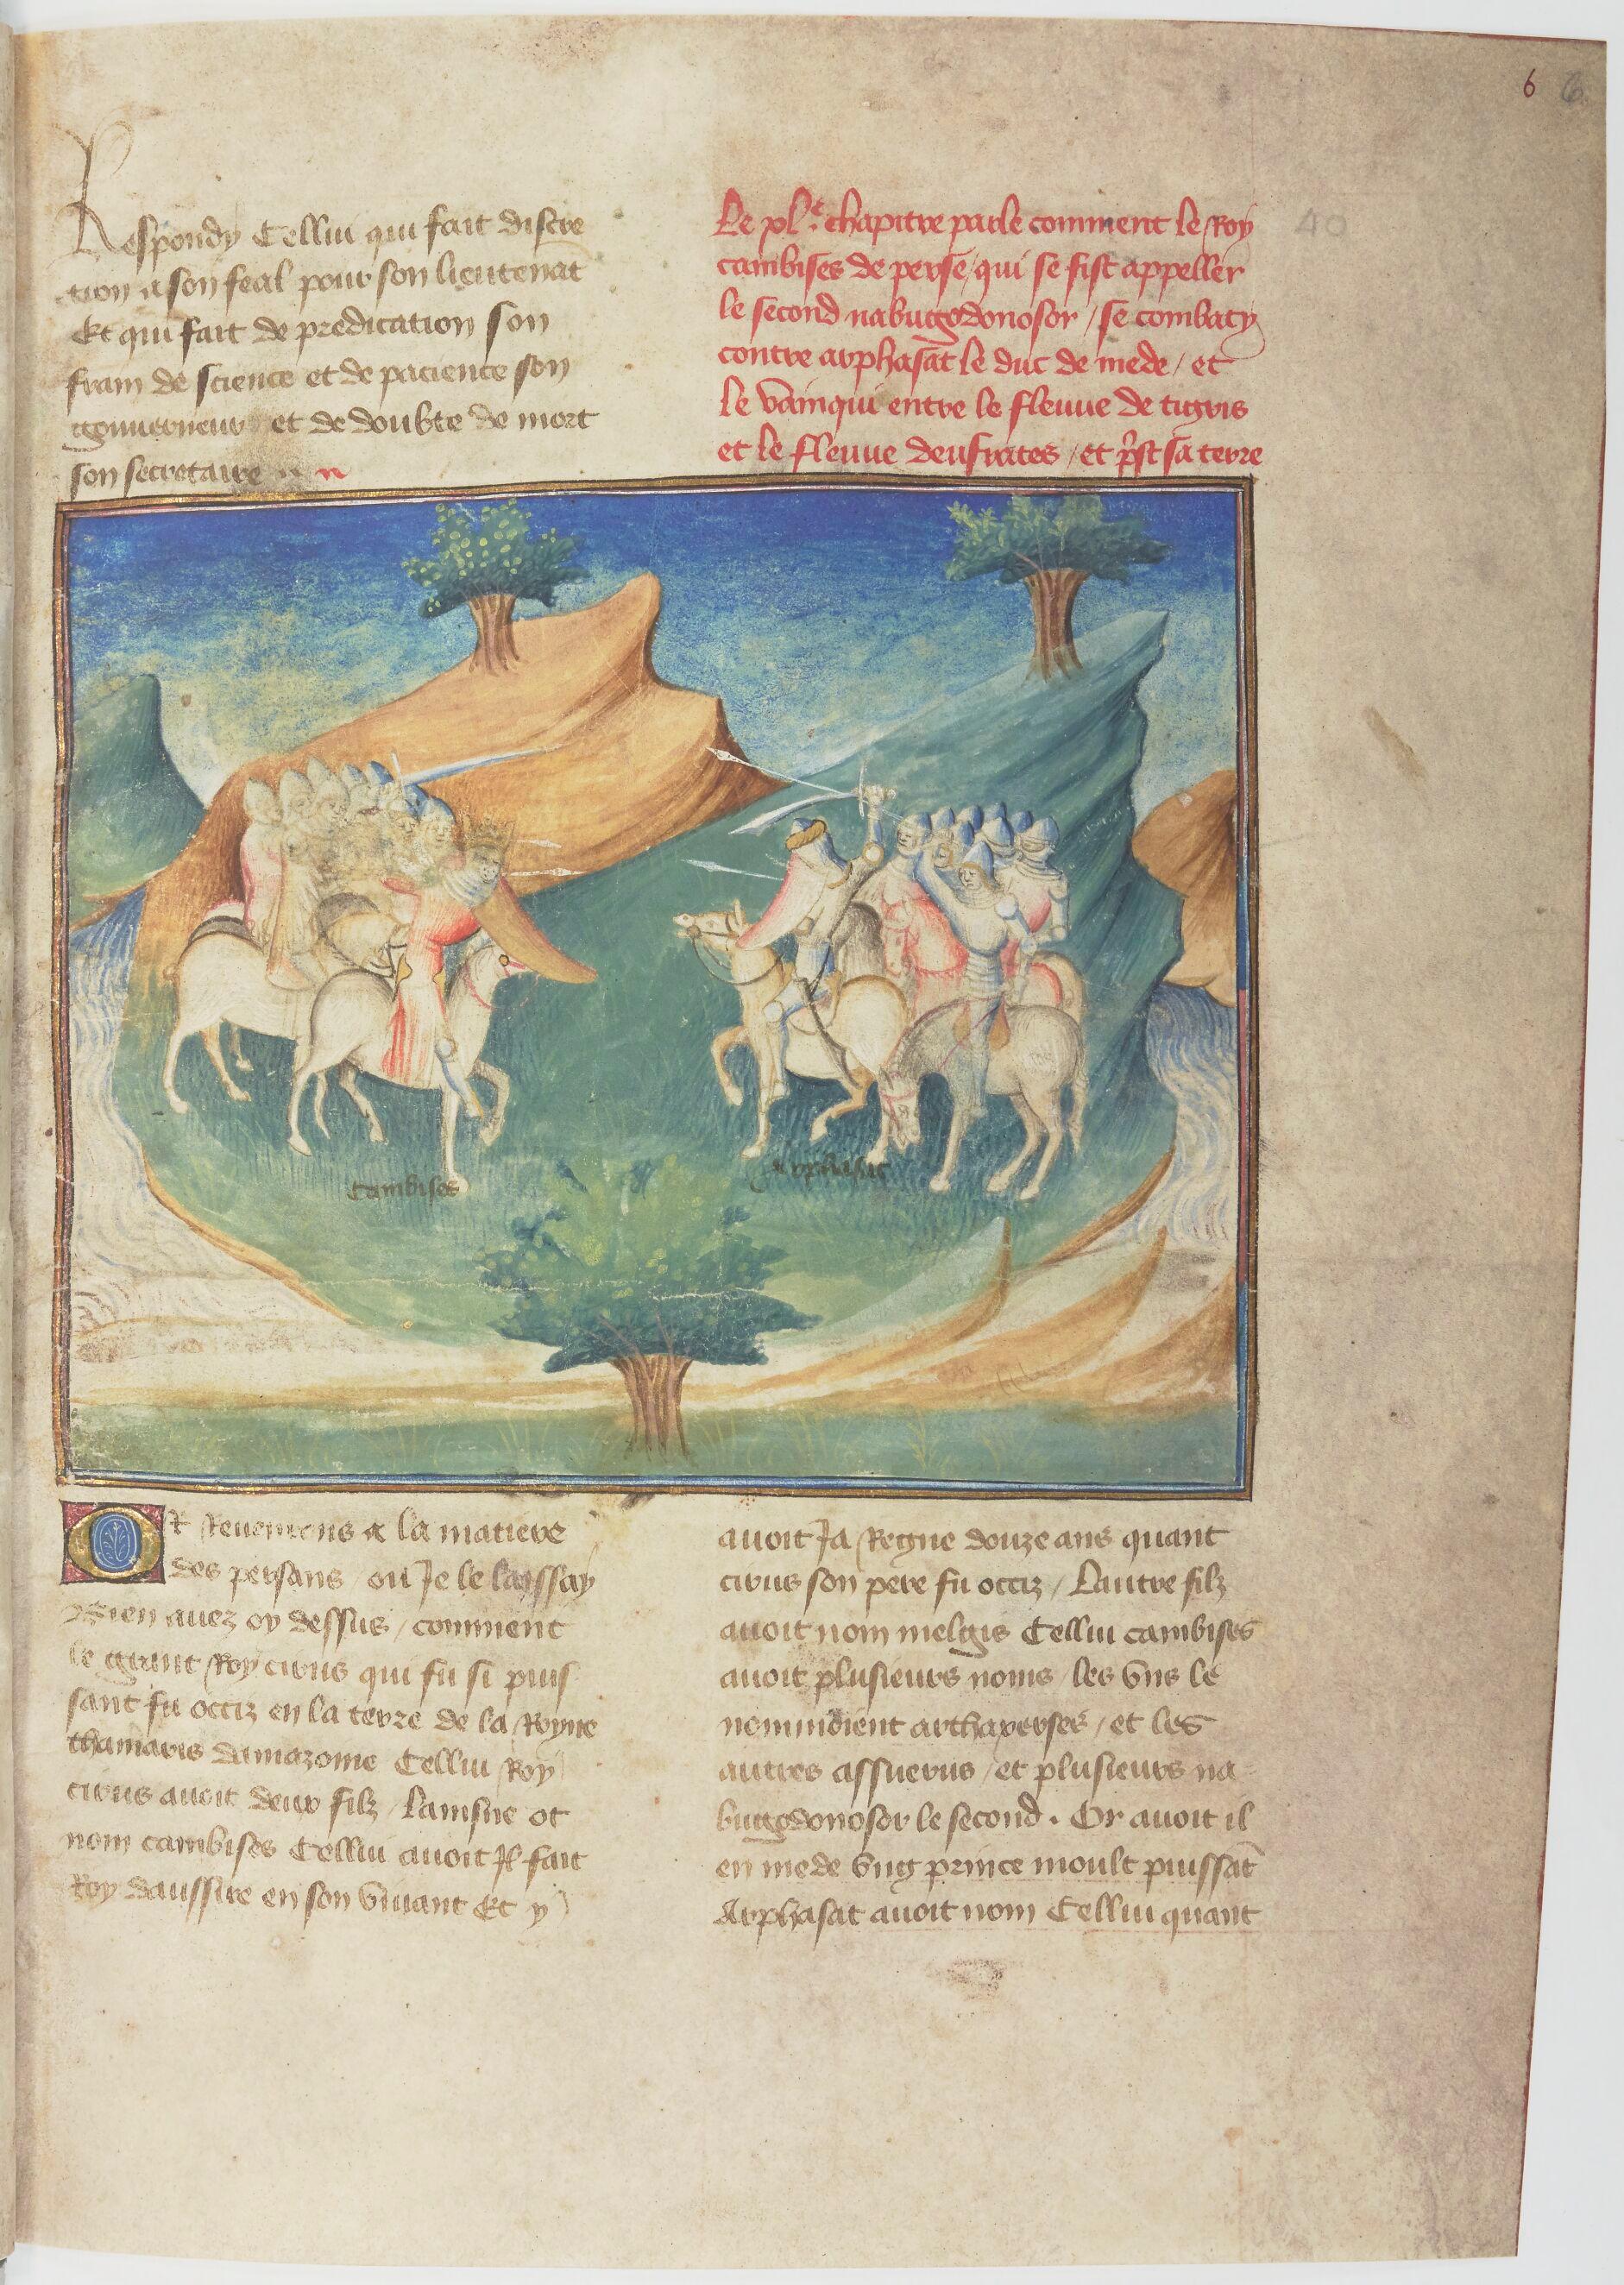 6 6
Respondy Cellui qui fait discre
tion a son feal pour son lieutenāt
Et qui fait de predication son
frain de science et de pacience son
gouuerneur et de doubte de mort
son secretaire
Le xl.e chapitre parle comment le Roy
cambises de perse / qui se fist appeller
le second nabugodonosor / se combaty
contre arphasat le duc de mede / et
le vainqui entre le fleuue de tigris
et le fleuue deufrates / et p̄st sa terre
40
Cambises
Arphasat
OR Reuenrons a la matiere
des persans / ou Je le laissay
Bien auez oy dessus / comment
le grant Roy cirus qui fu si puis
sant fu occiz en la terre de la Royne
thamaris damazonie Cellui Roy
cirus auoit deux filz / Lainsne ot
nom cambises Cellui auoit Jl fait
Roy daussire en son viuant Et y
auoit Ja Regne douze ans quant
cirus son pere fu occiz / Lautre filz
auoit nom melgis Cellui cambises
auoit plusieurs noms / les vns le
nommoient arthaxerses / et les
autres assuerus / et plusieurs na
bugodonosor le second . Or auoit il
en mede vng prince moult puissāt
Arphasat auoit nom Cellui quant